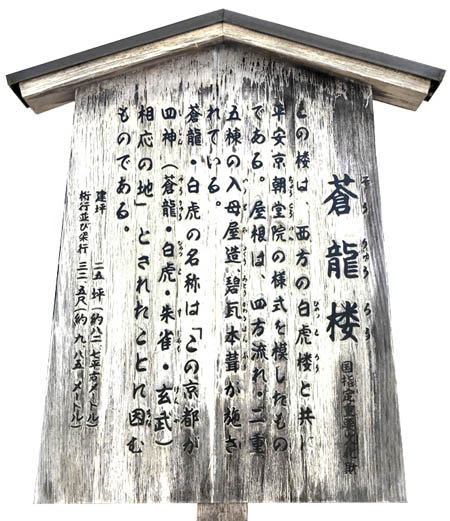 蒼龍楼
国指定重要文化財
この楼は、西方の白虎楼と共に
平安京朝堂院の様式を模したもの
である。屋根は、四方流れ・二重
五棟の入母屋造、碧瓦本葺が施さ
れている。
蒼龍・白虎の名称は「この京都が
四神（蒼龍・白虎・朱雀・玄武）
相応の地」とされたことに因む
ものである。
建坪 二五坪（約八二・七平方メートル）
桁行並び梁行 三二・五尺（約九・八五メートル）